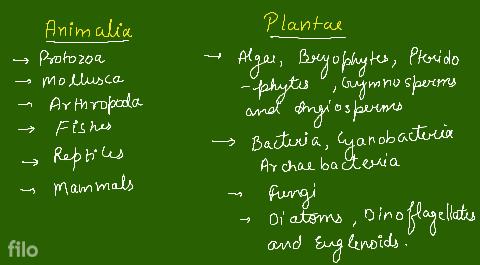 Animalia
→ Protozoa
→ Mollusca
→ Arthropoda
→ Fishes
→ Reptiles
→ Mammals
Plantae
→ Algae, Bryophytes, Pterido
-phytes, Gymnosperms
and Angiosperms
→ Bacteria, Cyanobacteria
Archaebacteria
→ Fungi
→ Diatoms, Dinoflagellates
and Euglenoids.
filo